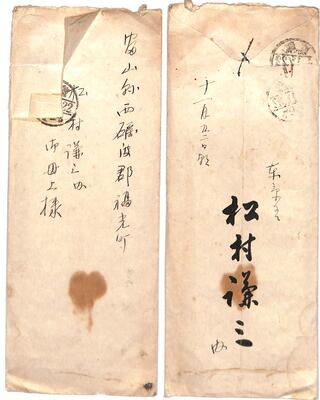 富山縣西礪波郡福光町
松村謙三内
御母上様
十一月五日
東京
松村謙三
内